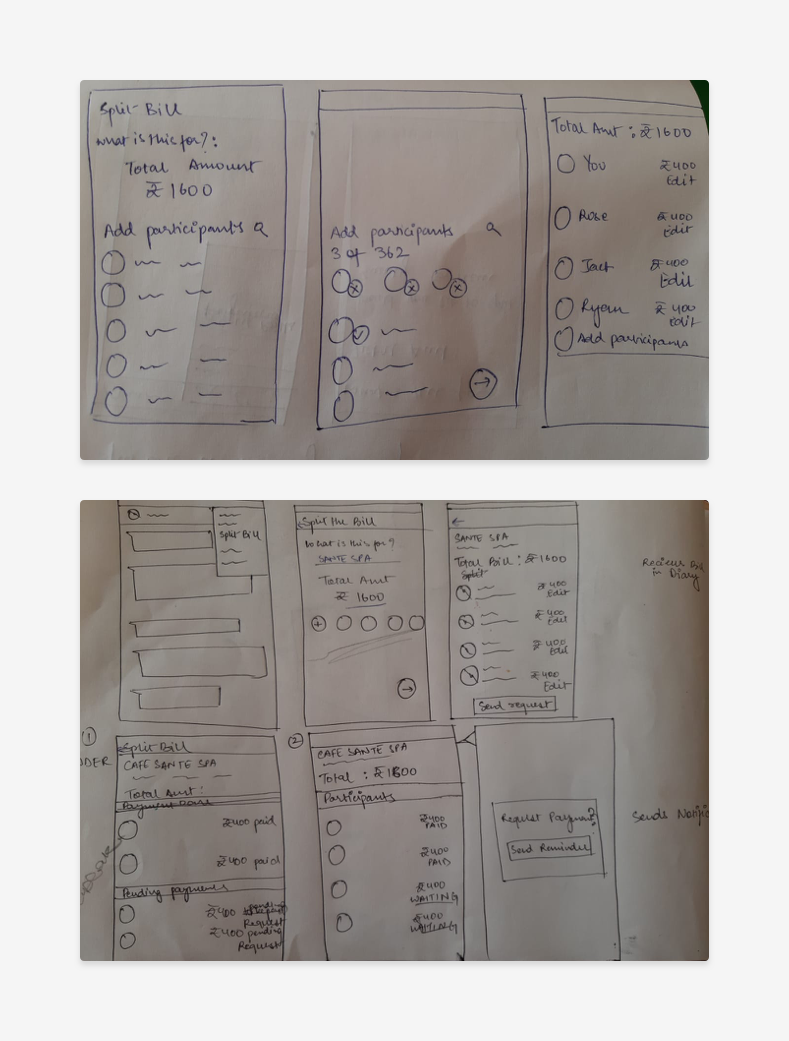 Split Bill
What is this for? :
Total Amount
₹ 1600
Add participants
Add participants
3 of 362
Total Amt : ₹1600
You ₹400
Edit
Rose ₹400
Edit
Jack ₹400
Edit
Ryan ₹400
Edit
Add participants
Split Bill
Split the Bill
What is this for?
SANTE SPA
Total Amt
₹ 1600
SANTE SPA
Total Bill : ₹1600
Split
₹400
Edit
₹400
Edit
₹400
Edit
₹400
Edit
Send request
in Diary
①
Split Bill
CAFE SANTE SPA
Total Amt :
Payment Done
₹400 paid
₹400 paid
Pending payments
₹400 pending
Request
₹400 pending
Request
②
CAFE SANTE SPA
Total : ₹1600
Participants
₹400
PAID
₹400
PAID
₹400
WAITING
₹400
WAITING
Request Payment?
Send Reminder
Sends